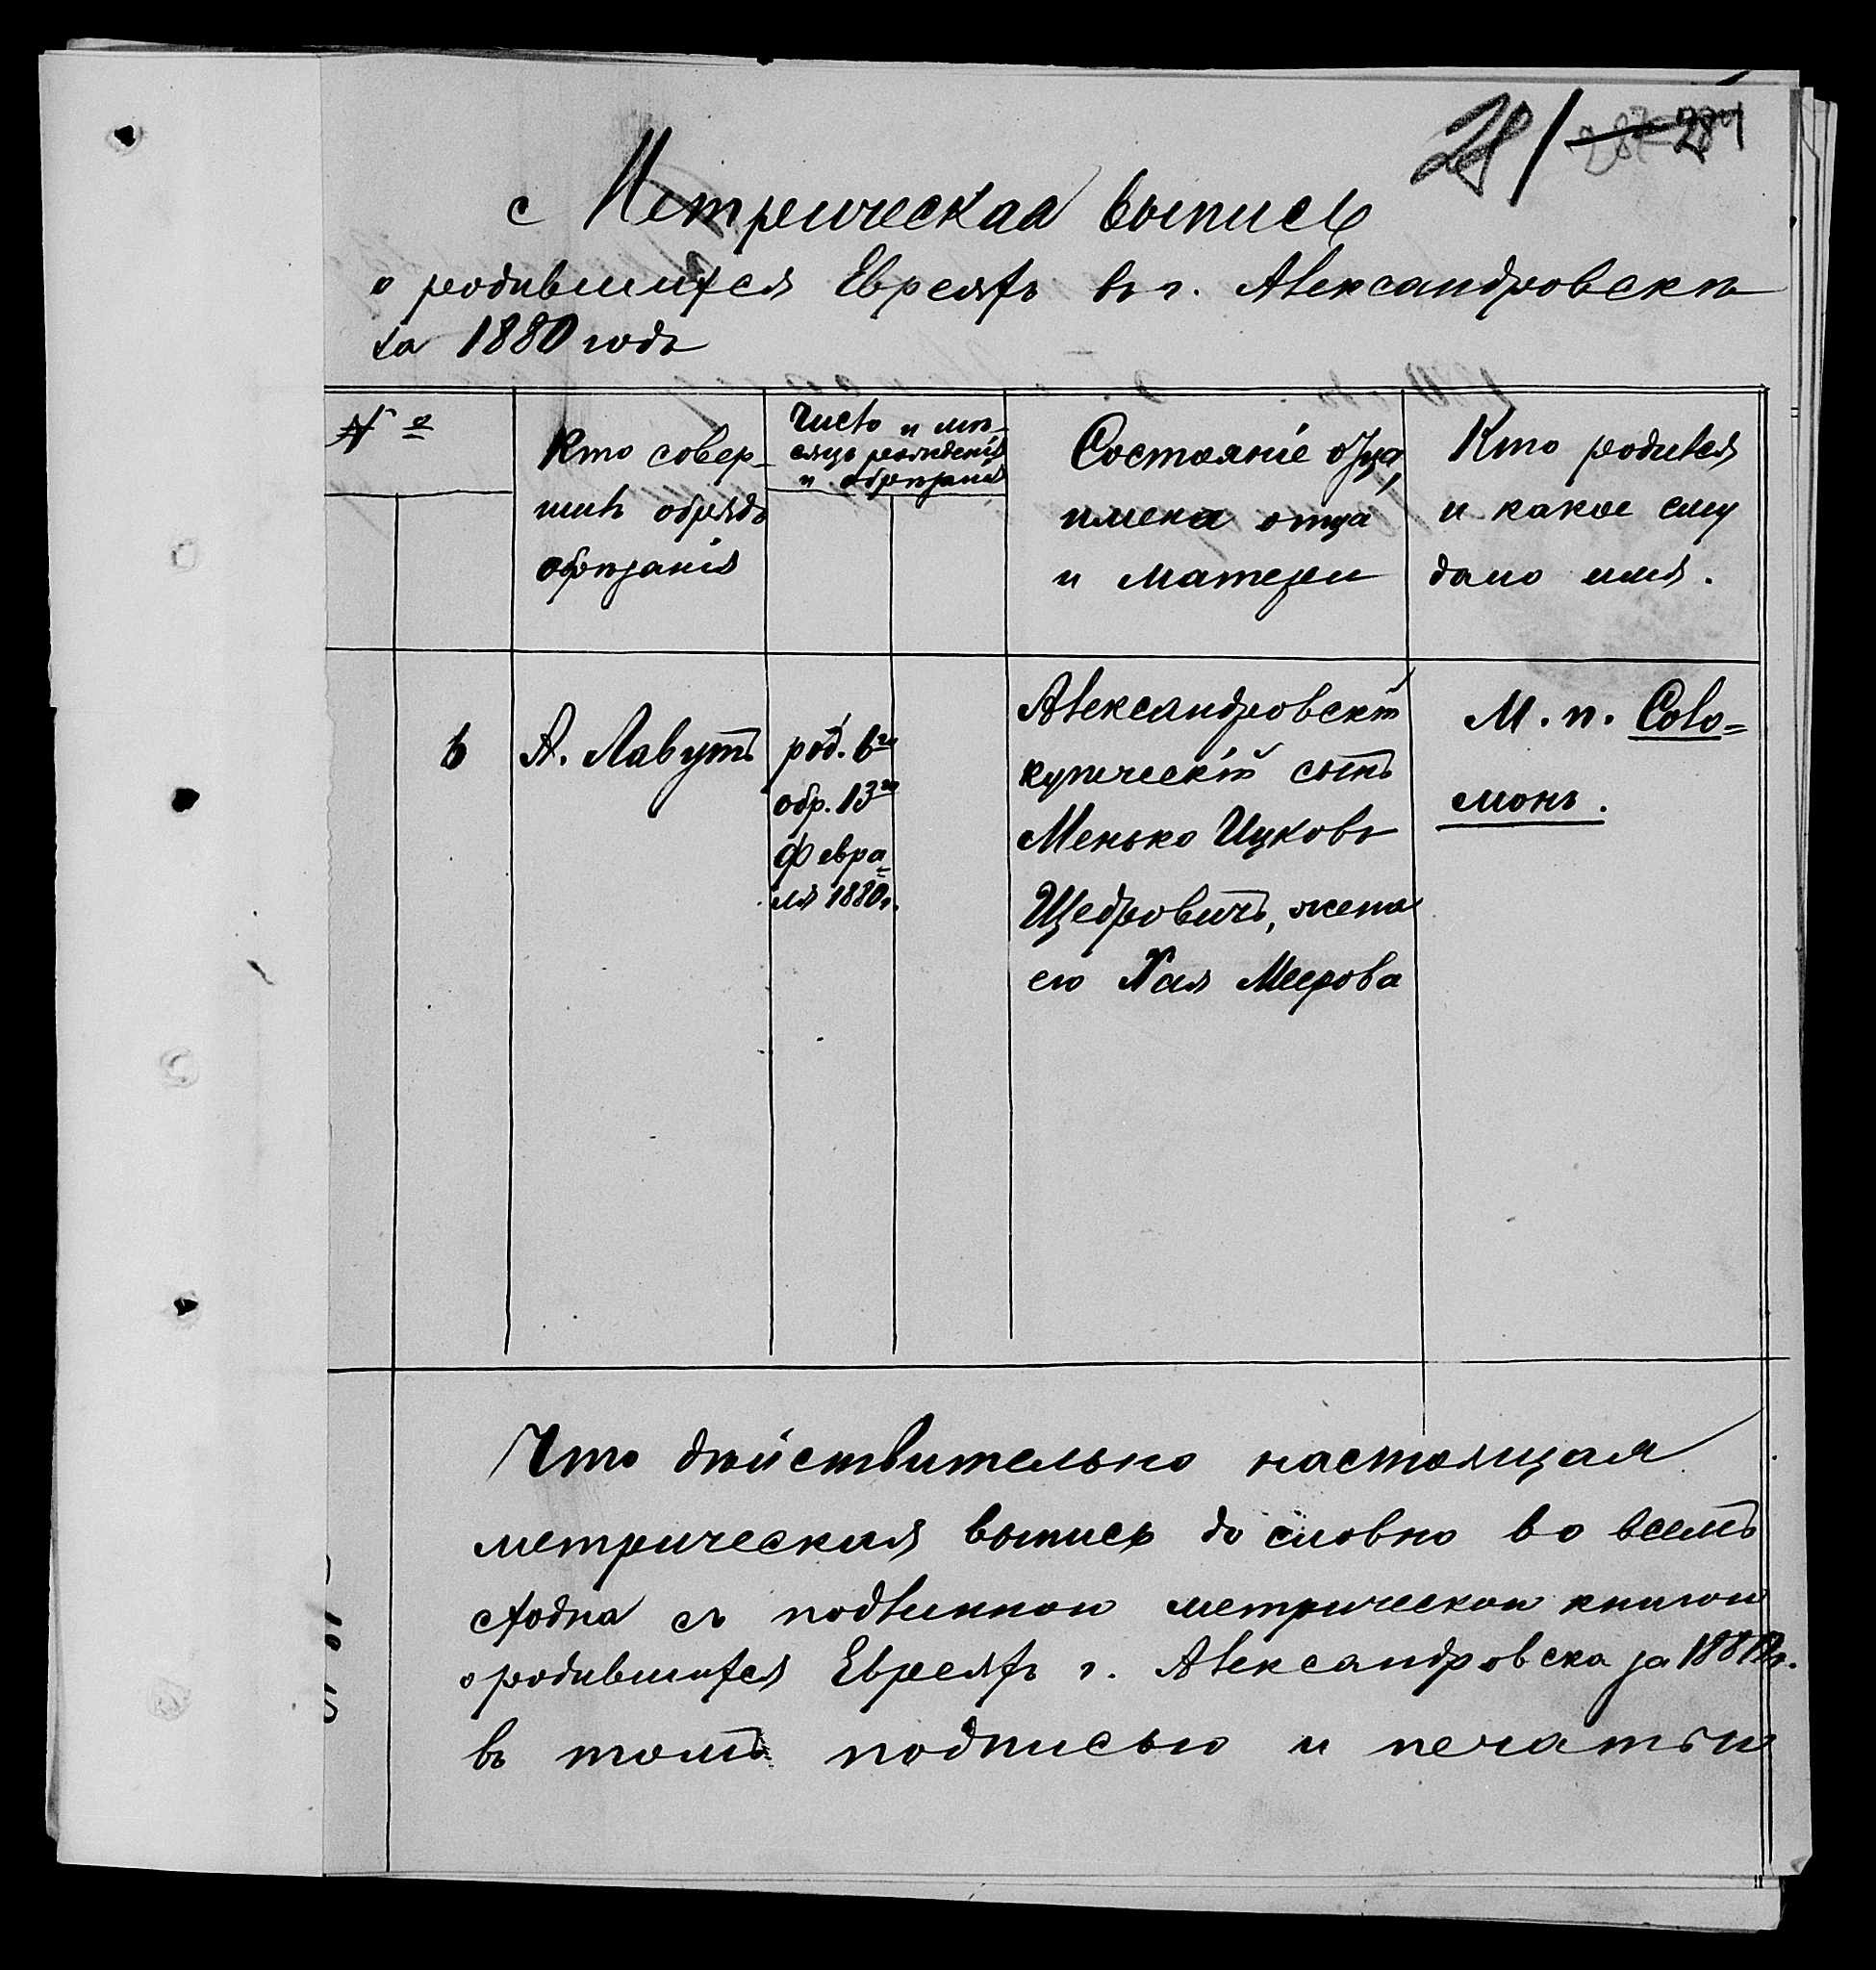 28/
с Метрическая выпись
о родившихся Евреяхъ въ г. Александровскѣ
за 1880 годъ
№
Кто совер-
шилъ обрядъ
обрѣзанія
Число и мѣ-
сяцъ рожденія
и обрѣзанія
Состояніе отца,
имена отца
и матери
Кто родился
и какое ему
дано имя.
6
А. Лавутъ
род. 6го
обр. 13го
февра-
ля 1880г.
Александровскій
купеческій сынъ
Менько Ицковъ
Щедровичъ, жена
его Хая Меерова
М. п. Соло=
монъ.
Что дѣйствительно настоящая
метрическая выпись до словно во всемъ
сходна съ подлинною метрическою книгою
о родившихся Евреяхъ г. Александровска за 1880г.
въ томъ подписью и печатью